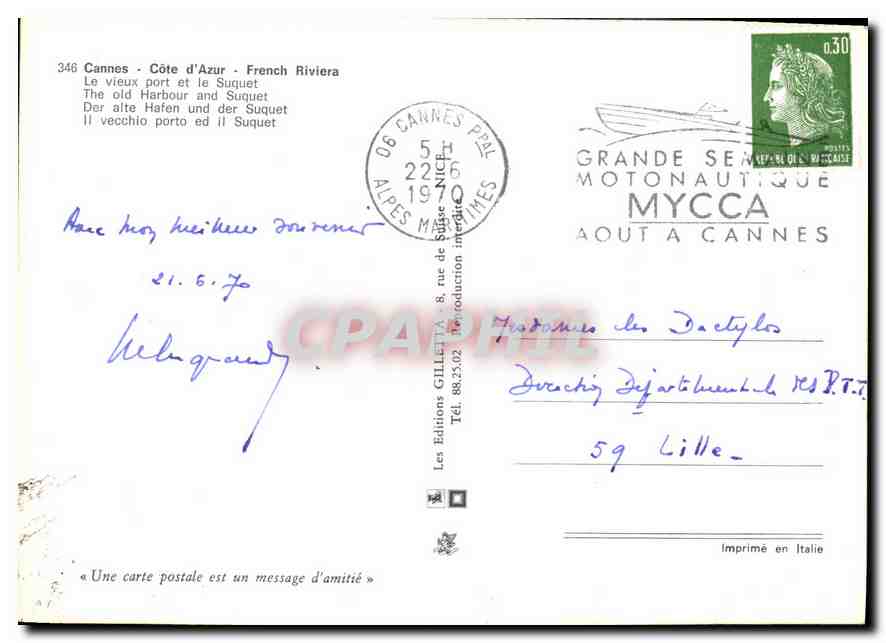 346 Cannes - Côte d'Azur - French Riviera
Le vieux port et le Suquet
The old Harbour and Suquet
Der alte Hafen und der Suquet
Il vecchio porto ed il Suquet
06 CANNES PPAL
5 H
22-6
1970
ALPES MARITIMES
GRANDE SEMAINE
MOTONAUTIQUE
MYCCA
AOUT A CANNES
0,30
POSTES
REPUBLIQUE FRANÇAISE
Avec mon meilleur souvenir
21.6.70
Les Editions GILLETTA - 8, rue de Suisse - NICE
Tél. 88.25.02 Reproduction interdite
CPAPHIL
Mesdames les Dactylos
Direction Départementale des P.T.T.
59 Lille
Imprimé en Italie
« Une carte postale est un message d'amitié »